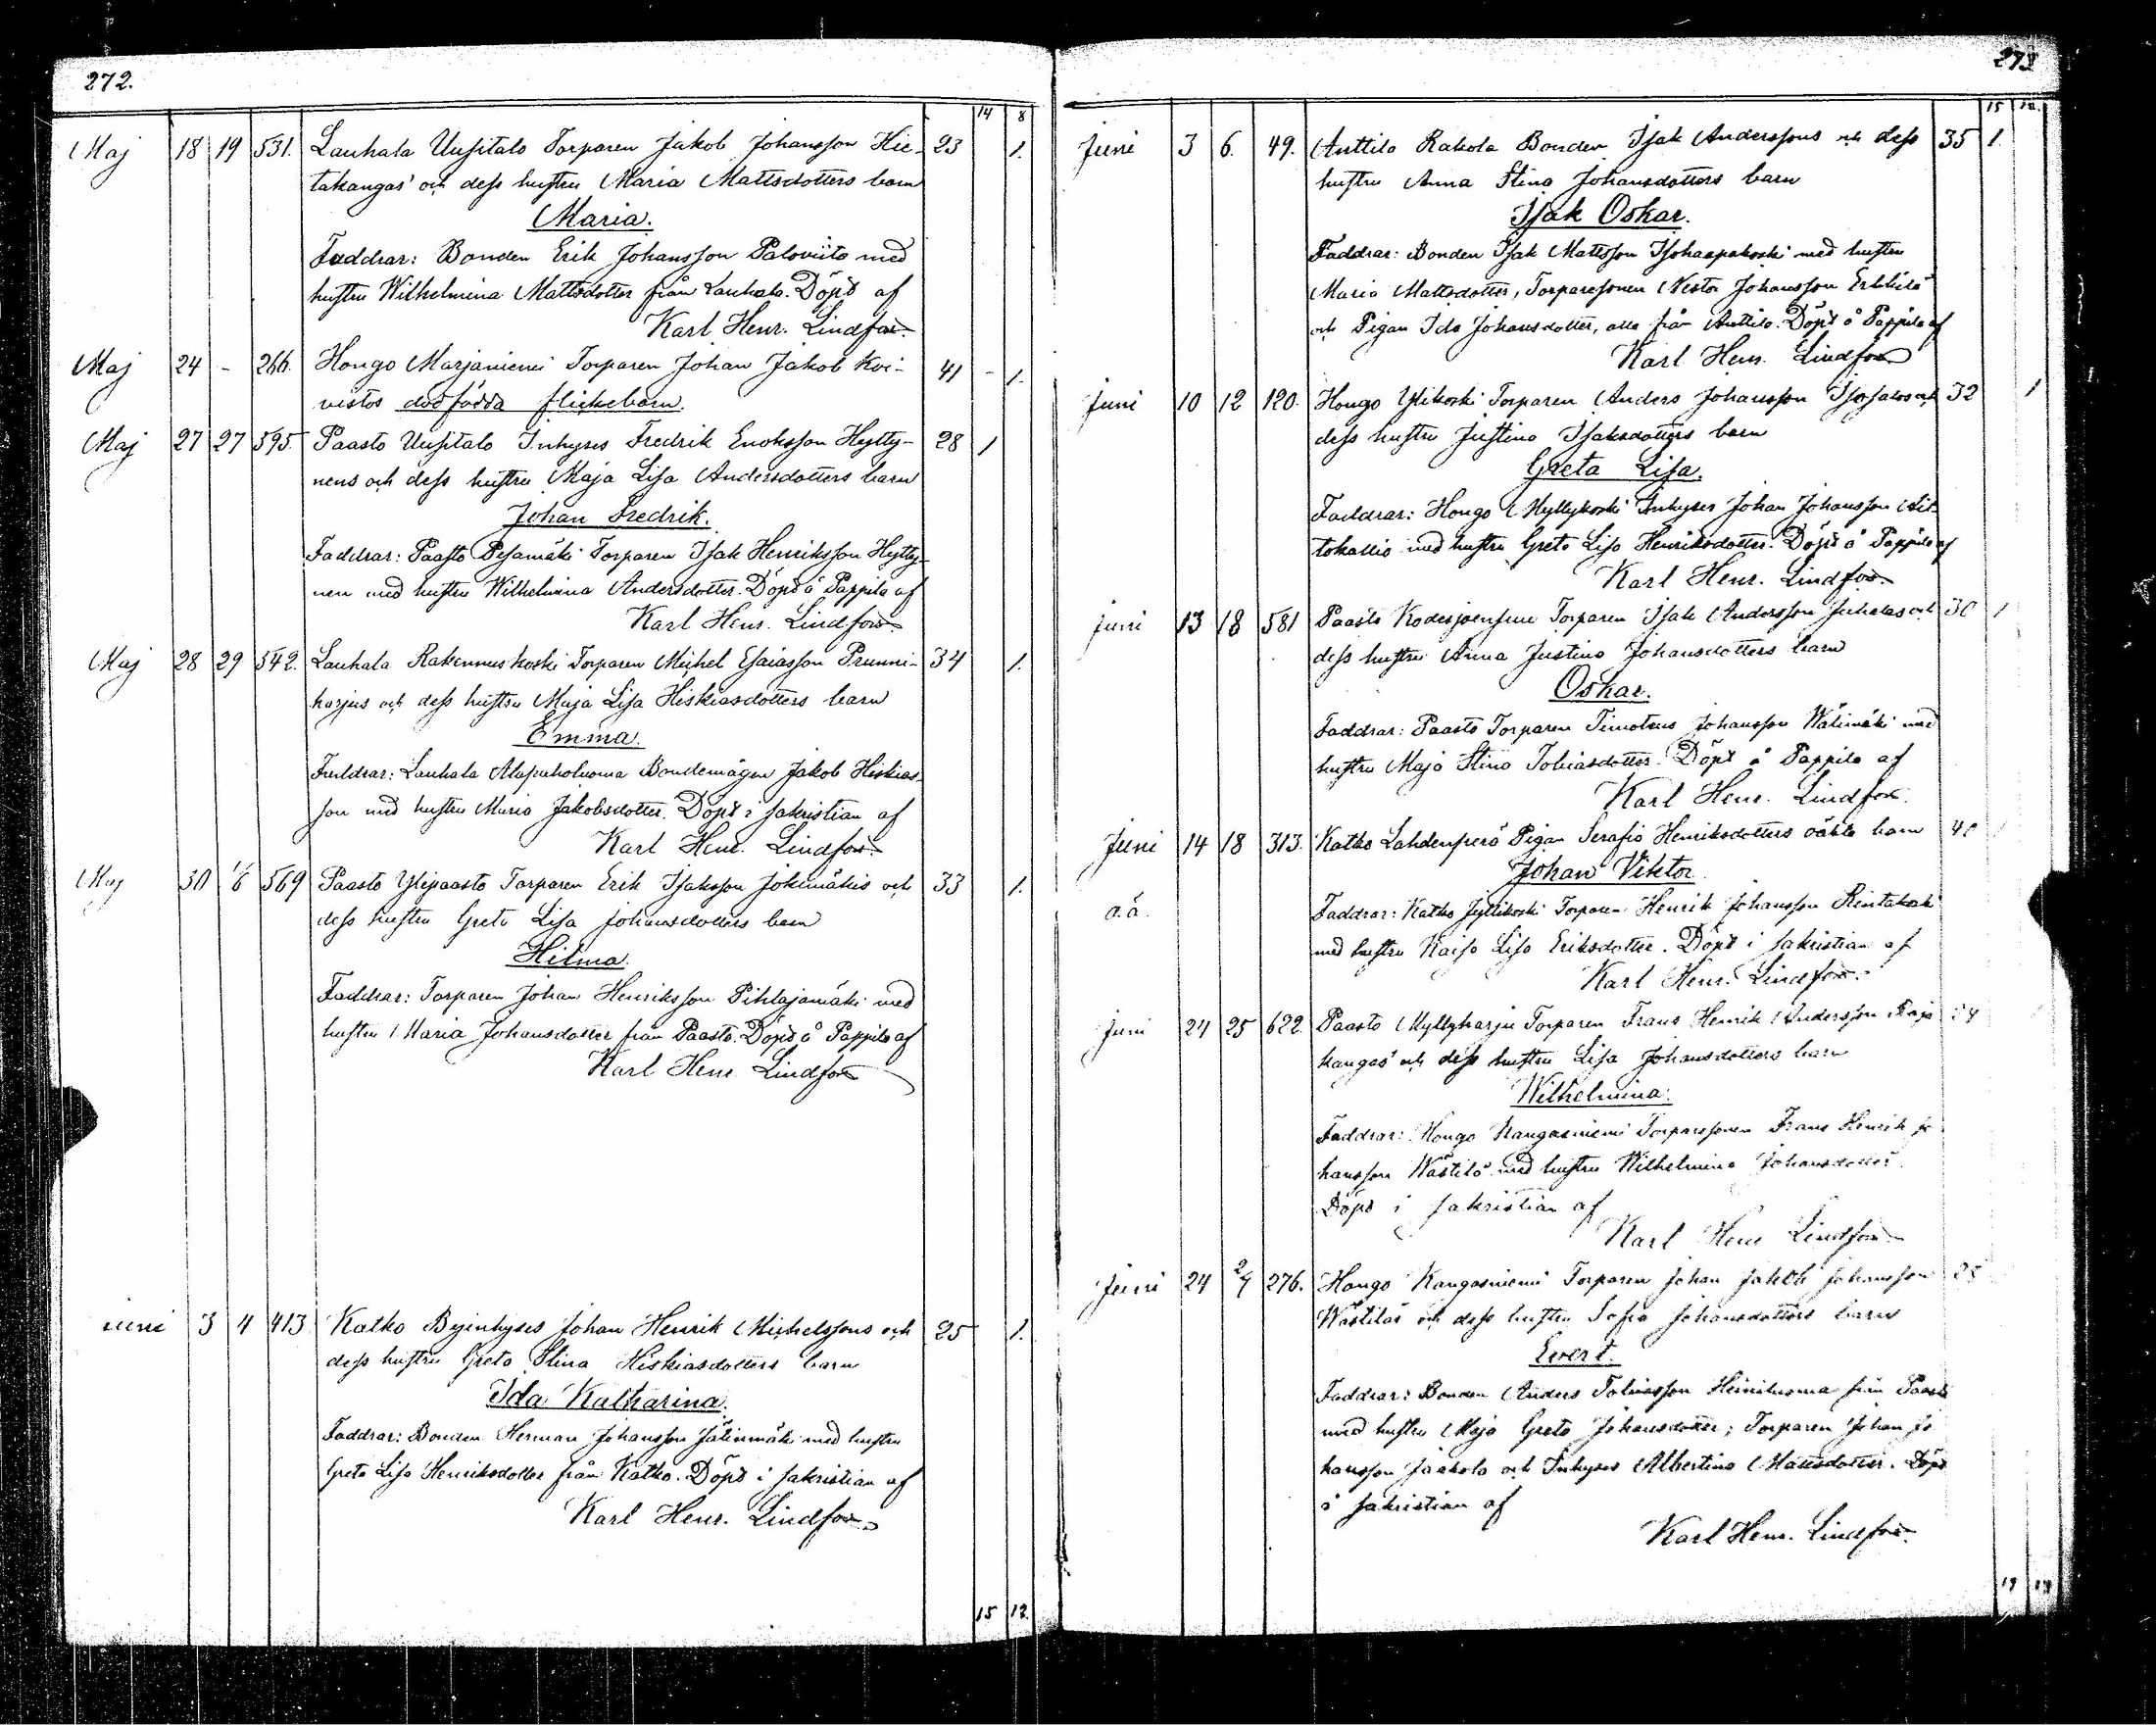 272.
14 8
Maj 18 19 531. Lauhala Uusitalo Torparen Jakob Johansson Hie- 23 1.
takangas' och dess hustru Maria Mattsdotters barn
Maria.
Faddrar: Bonden Erik Johansson Paloviito med
hustru Wilhelmina Mattsdotter från Lauhala. Döpt af
Karl Henr. Lindfors
Maj 24 - 266. Hongo Marjaniemi Torparen Johan Jakob Koi- 41 - 1.
vistos dödfödda flickebarn.
Maj 27 27 595. Paasto Uusitalo Inhyses Fredrik Enoksson Hytty- 28 1
nens och dess hustru Maja Lisa Andersdotters barn
Johan Fredrik.
Faddrar: Paasto Pesämäki Torparen Isak Henriksson Hytty-
nen med hustru Wilhelmina Andersdotter. Döpt å Pappila af
Karl Henr. Lindfors
Maj 28 29 542. Lauhala Rakennuskoski Torparen Michel Esaiasson Prunni- 34 1.
harjus och dess hustru Maja Lisa Hiskiasdotters barn
Emma.
Faddrar: Lauhala Alapaholuoma Bondemågen Jakob Hiskias-
son med hustru Maria Jakobsdotter. Döpt i sakristian af
Karl Henr. Lindfors
Maj 30 1/6 569 Paasto Ylipaasto Torparen Erik Isaksson Jokimäkis och 33 1.
dess hustru Greta Lisa Johansdotters barn
Hilma.
Faddrar: Torparen Johan Henriksson Pihlajamäki med
hustru Maria Johansdotter från Paasto. Döpt å Pappila af
Karl Henr. Lindfors
Juni 3 4 413 Katko Byinhyses Johan Henrik Michelssons och 25 1.
dess hustru Greta Stina Hiskiasdotters barn
Ida Katharina.
Faddrar: Bonden Herman Johansson Jälinmäki med hustru
Greta Lisa Henriksdotter från Katko. Döpt i sakristian af
Karl Henr. Lindfors
15 12.
273
15 12.
Juni 3 6. 49. Anttila Rakola Bonden Isak Anderssons och dess 35 1.
hustru Anna Stina Johansdotters barn
Isak Oskar.
Faddrar: Bonden Isak Mattsson Isohaapakoski med hustru
Maria Mattsdotter, Torparesonen Nestor Johansson Erkkilä
och Pigan Ida Johansdotter, alla från Anttila. Döpt å Pappila af
Karl Henr. Lindfors
Juni 10 12 120. Hongo Ylikoski Torparen Anders Johansson Isosalos och 32 1
dess hustru Justina Isaksdotters barn
Greta Lisa.
Faddrar: Hongo Myllykoski Inhyses Johan Johansson Ait-
tokallio med hustru Greta Lisa Henriksdotter. Döpt å Pappila af
Karl Henr. Lindfors
Juni 13 18 581 Paasto Torparen Isak Andersson Juhalas och 30 1
dess hustru Anna Justina Johansdotters barn
Oskar.
Faddrar: Paasto Torparen Timoteus Johansson Wälimäki med
hustru Maja Stina Tobiasdotter. Döpt å Pappila af
Karl Henr. Lindfors
Juni 14 18 313. Katko Lahdenperä Pigan Serafia Henriksdotters oäkta barn 40
Johan Viktor
o.ä. Faddrar: Katko Jyllikoski Torparen Henrik Johansson Rintakoski
med hustru Kaisa Lisa Eriksdotter. Döpt i sakristian af
Karl Henr. Lindfors
Juni 24 25 622. Paasto Myllyharju Torparen Frans Henrik Andersson Raja 24
kangas' och dess hustru Lisa Johansdotters barn
Wilhelmina.
Faddrar: Hongo Kangasniemi Torparesonen Frans Henrik Jo
hansson Wästilä med hustru Wilhelmina Johansdotter.
Döpt i sakristian af
Karl Henr Lindfors
Juni 24 2/7 276. Hongo Kangasniemi Torparen Johan Jakob Johansson 25
Wästiläs och dess hustru Sofia Johansdotters barn
Evert.
Faddrar: Bonden Anders Tobiasson Heiniluoma från Paasto
med hustru Maja Greta Johansdotter; Torparen Johan Jo
hansson Jaakola och Inhyses Albertina Mattsdotter. Döpt
i sakristian af
Karl Henr. Lindfors
17